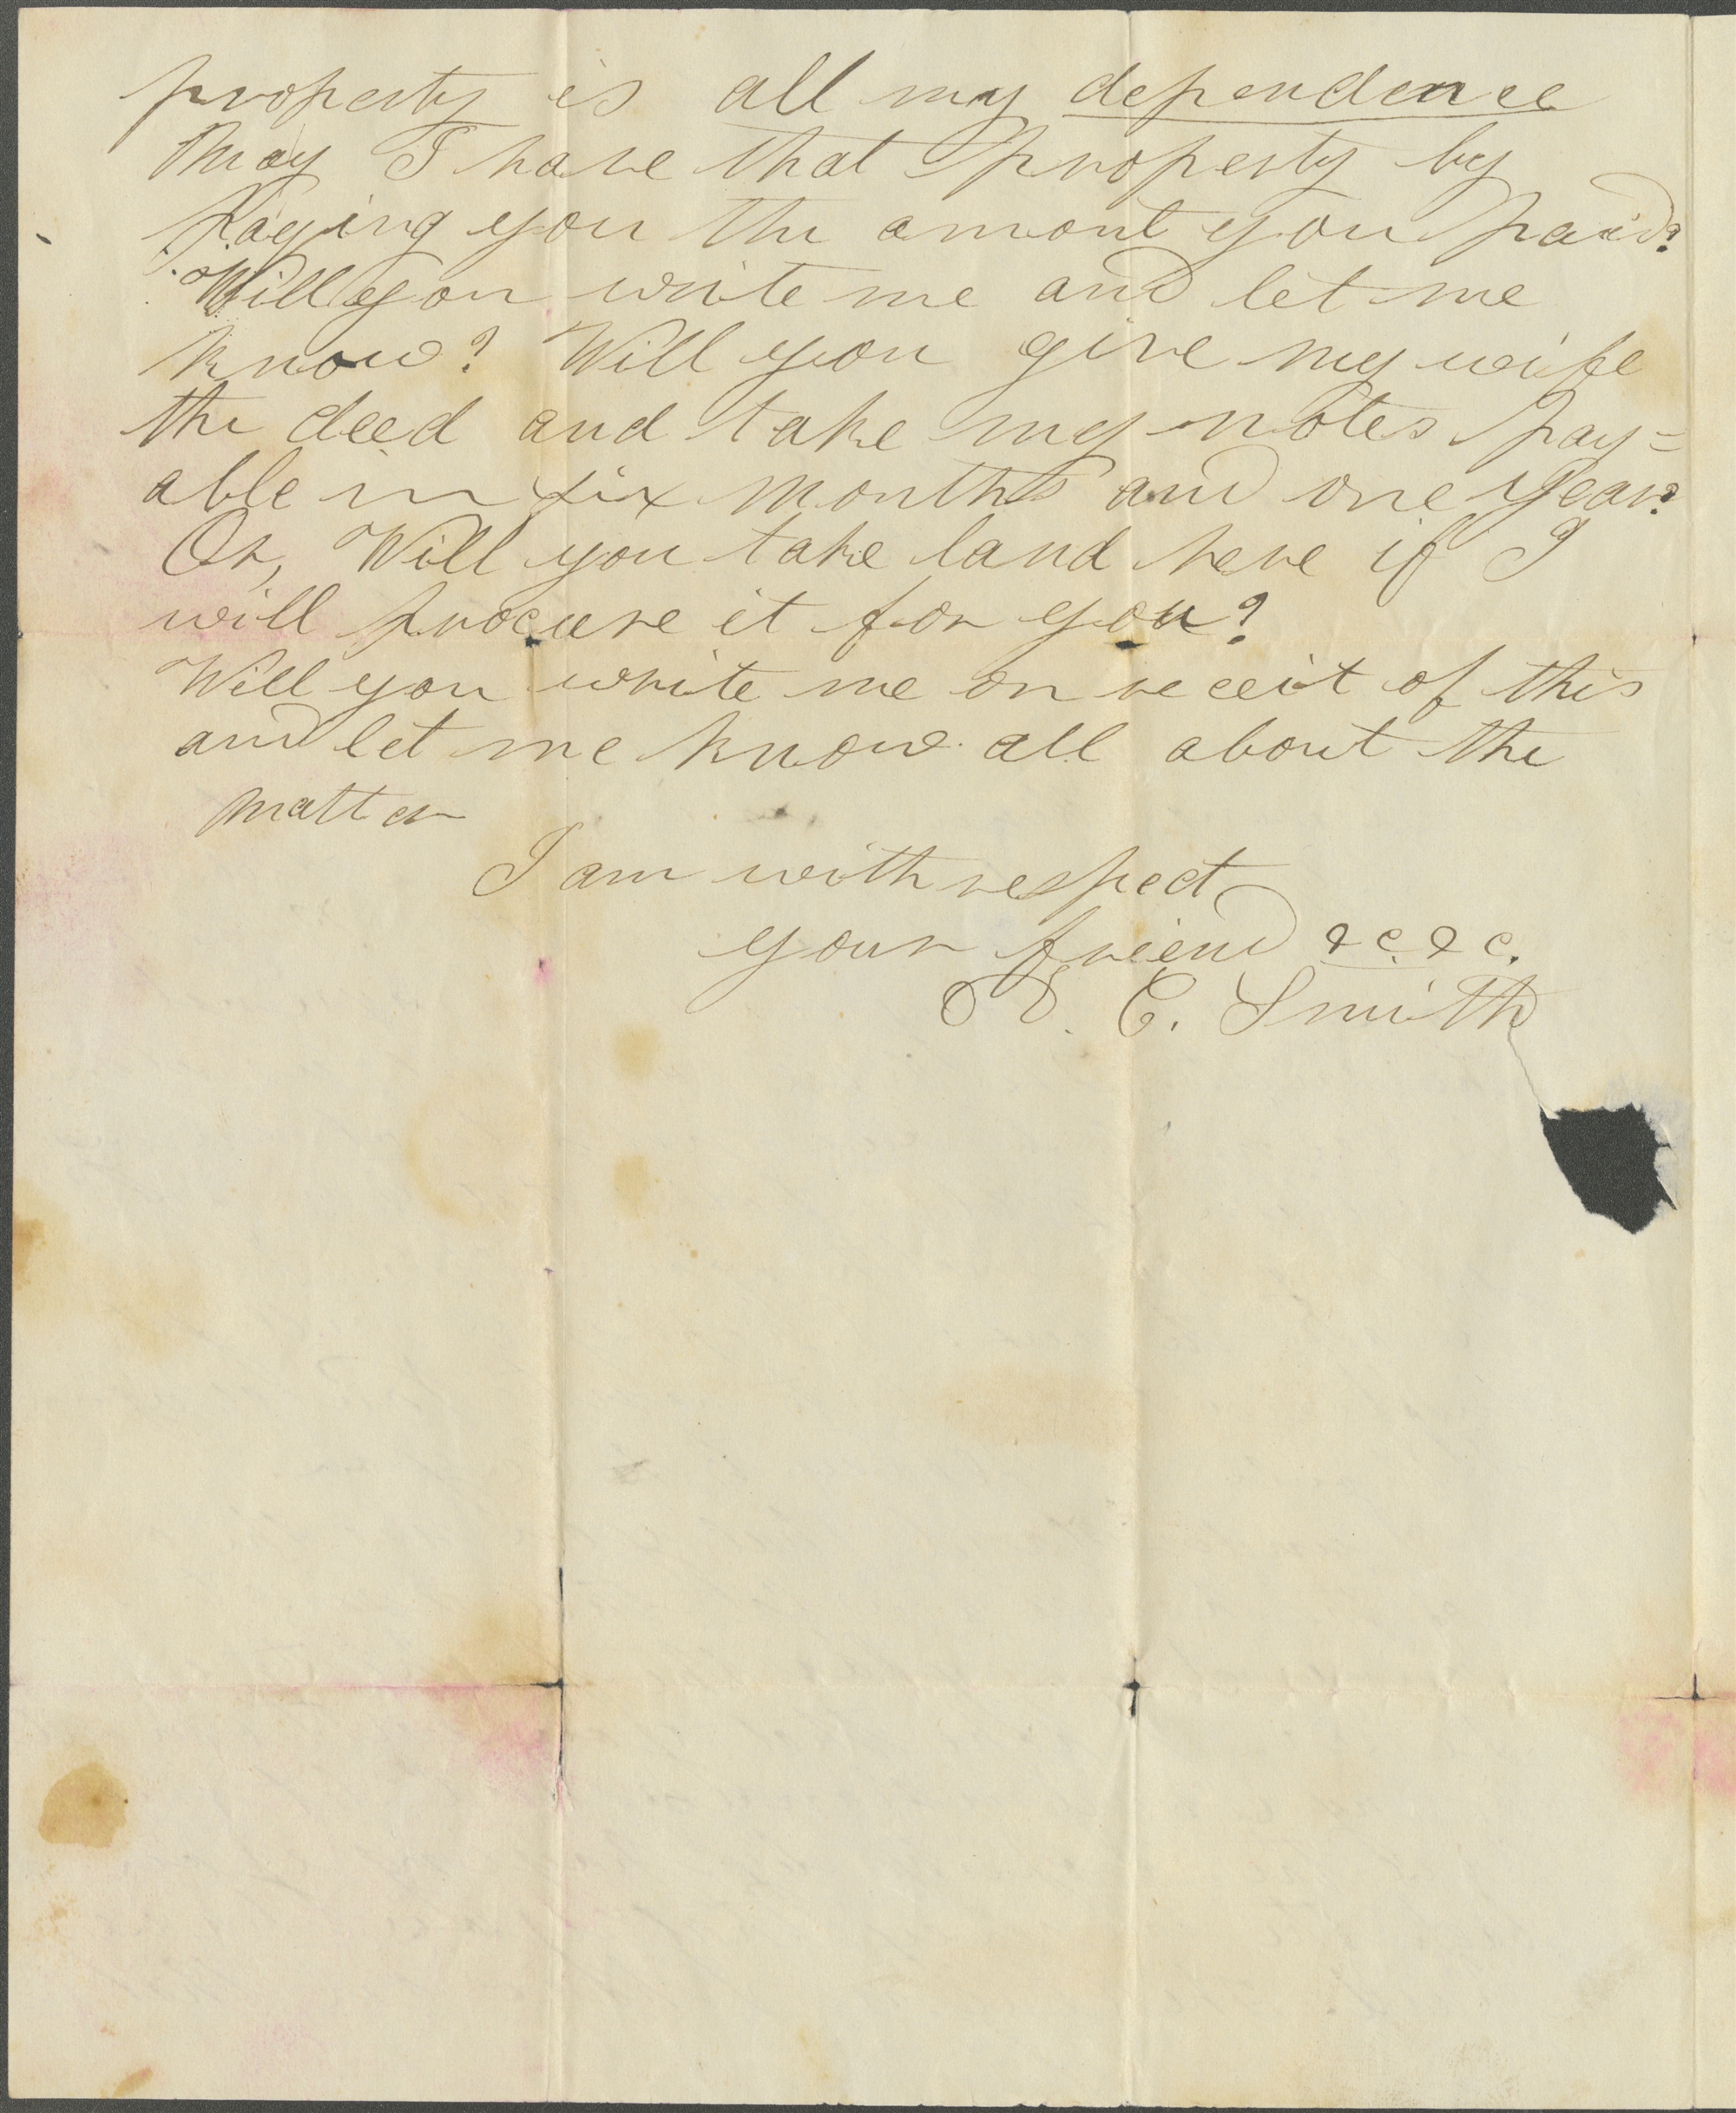 property is all my dependence
May I have that property by
paying you the amont you paid?
Will you write me and let me
know? Will you give my wife
the deed and take my notes pay=
able in six months and one year?
Or, Will you take land here if I
will procure it for you?
Will you write me on receit of this
and let me know all about the
matter
I am with respect
your friend &c &c.
C. Smith